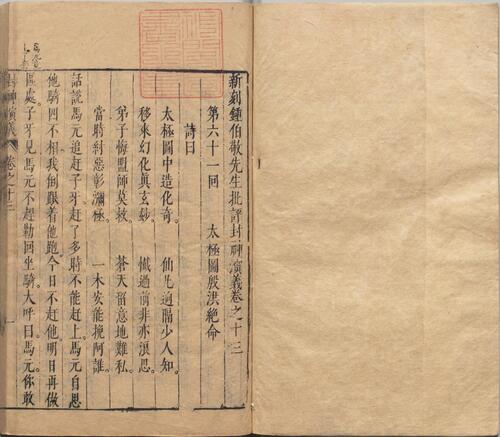 新刻鍾伯敬先生批評封神演義卷之十三
第六十一回　太極圖殷洪絕命
詩曰
太極圖中造化奇。　仙凡迥隔少人知。
移來幻化眞玄妙。　懺過前非亦浪思。
弟子悔盟師莫救。　蒼天留意地難私。
當時紂惡彰瀰極。　一木安能挽阿誰。
話說馬元追赶子牙赶了多時不能赶上馬元自思
他騎四不相我倒跟着他跑今日不赶他明日再做
區處子牙見馬元不赶勒回坐騎大呼曰馬元你敢
封神演義　卷之十三　一